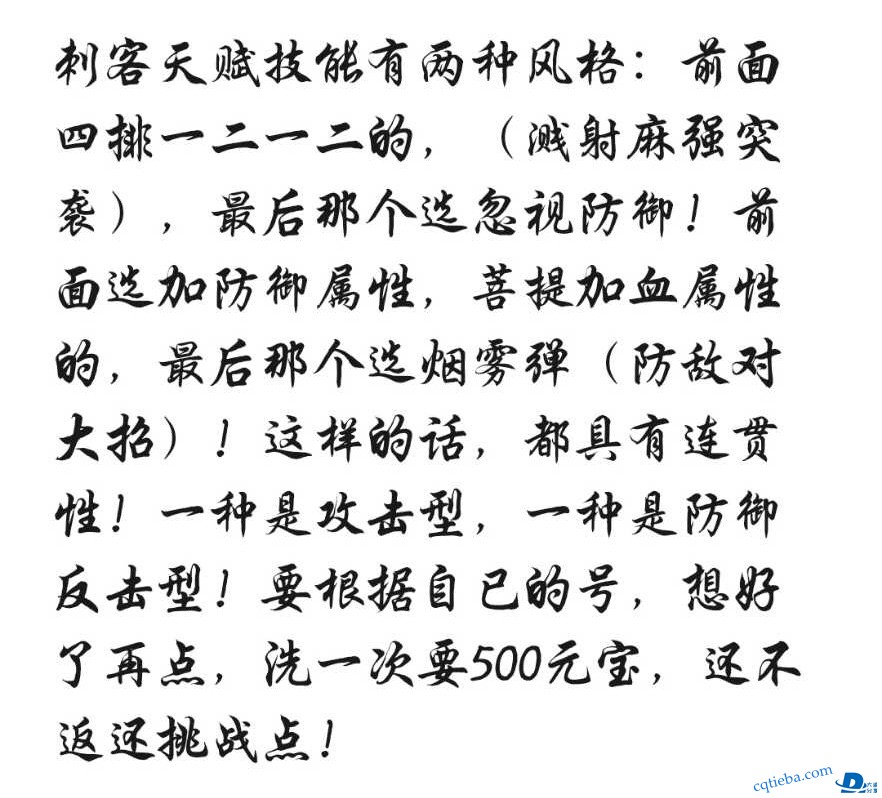 刺客天赋技能有两种风格：前面
四排一二一二的，（溅射麻强突
袭），最后那个选忽视防御！前
面选加防御属性，菩提加血属性
的，最后那个选烟雾弹（防敌对
大招）！这样的话，都具有连贯
性！一种是攻击型，一种是防御
反击型！要根据自已的号，想好
了再点，洗一次要500元宝，还不
返还挑战点！
cqtieba.com